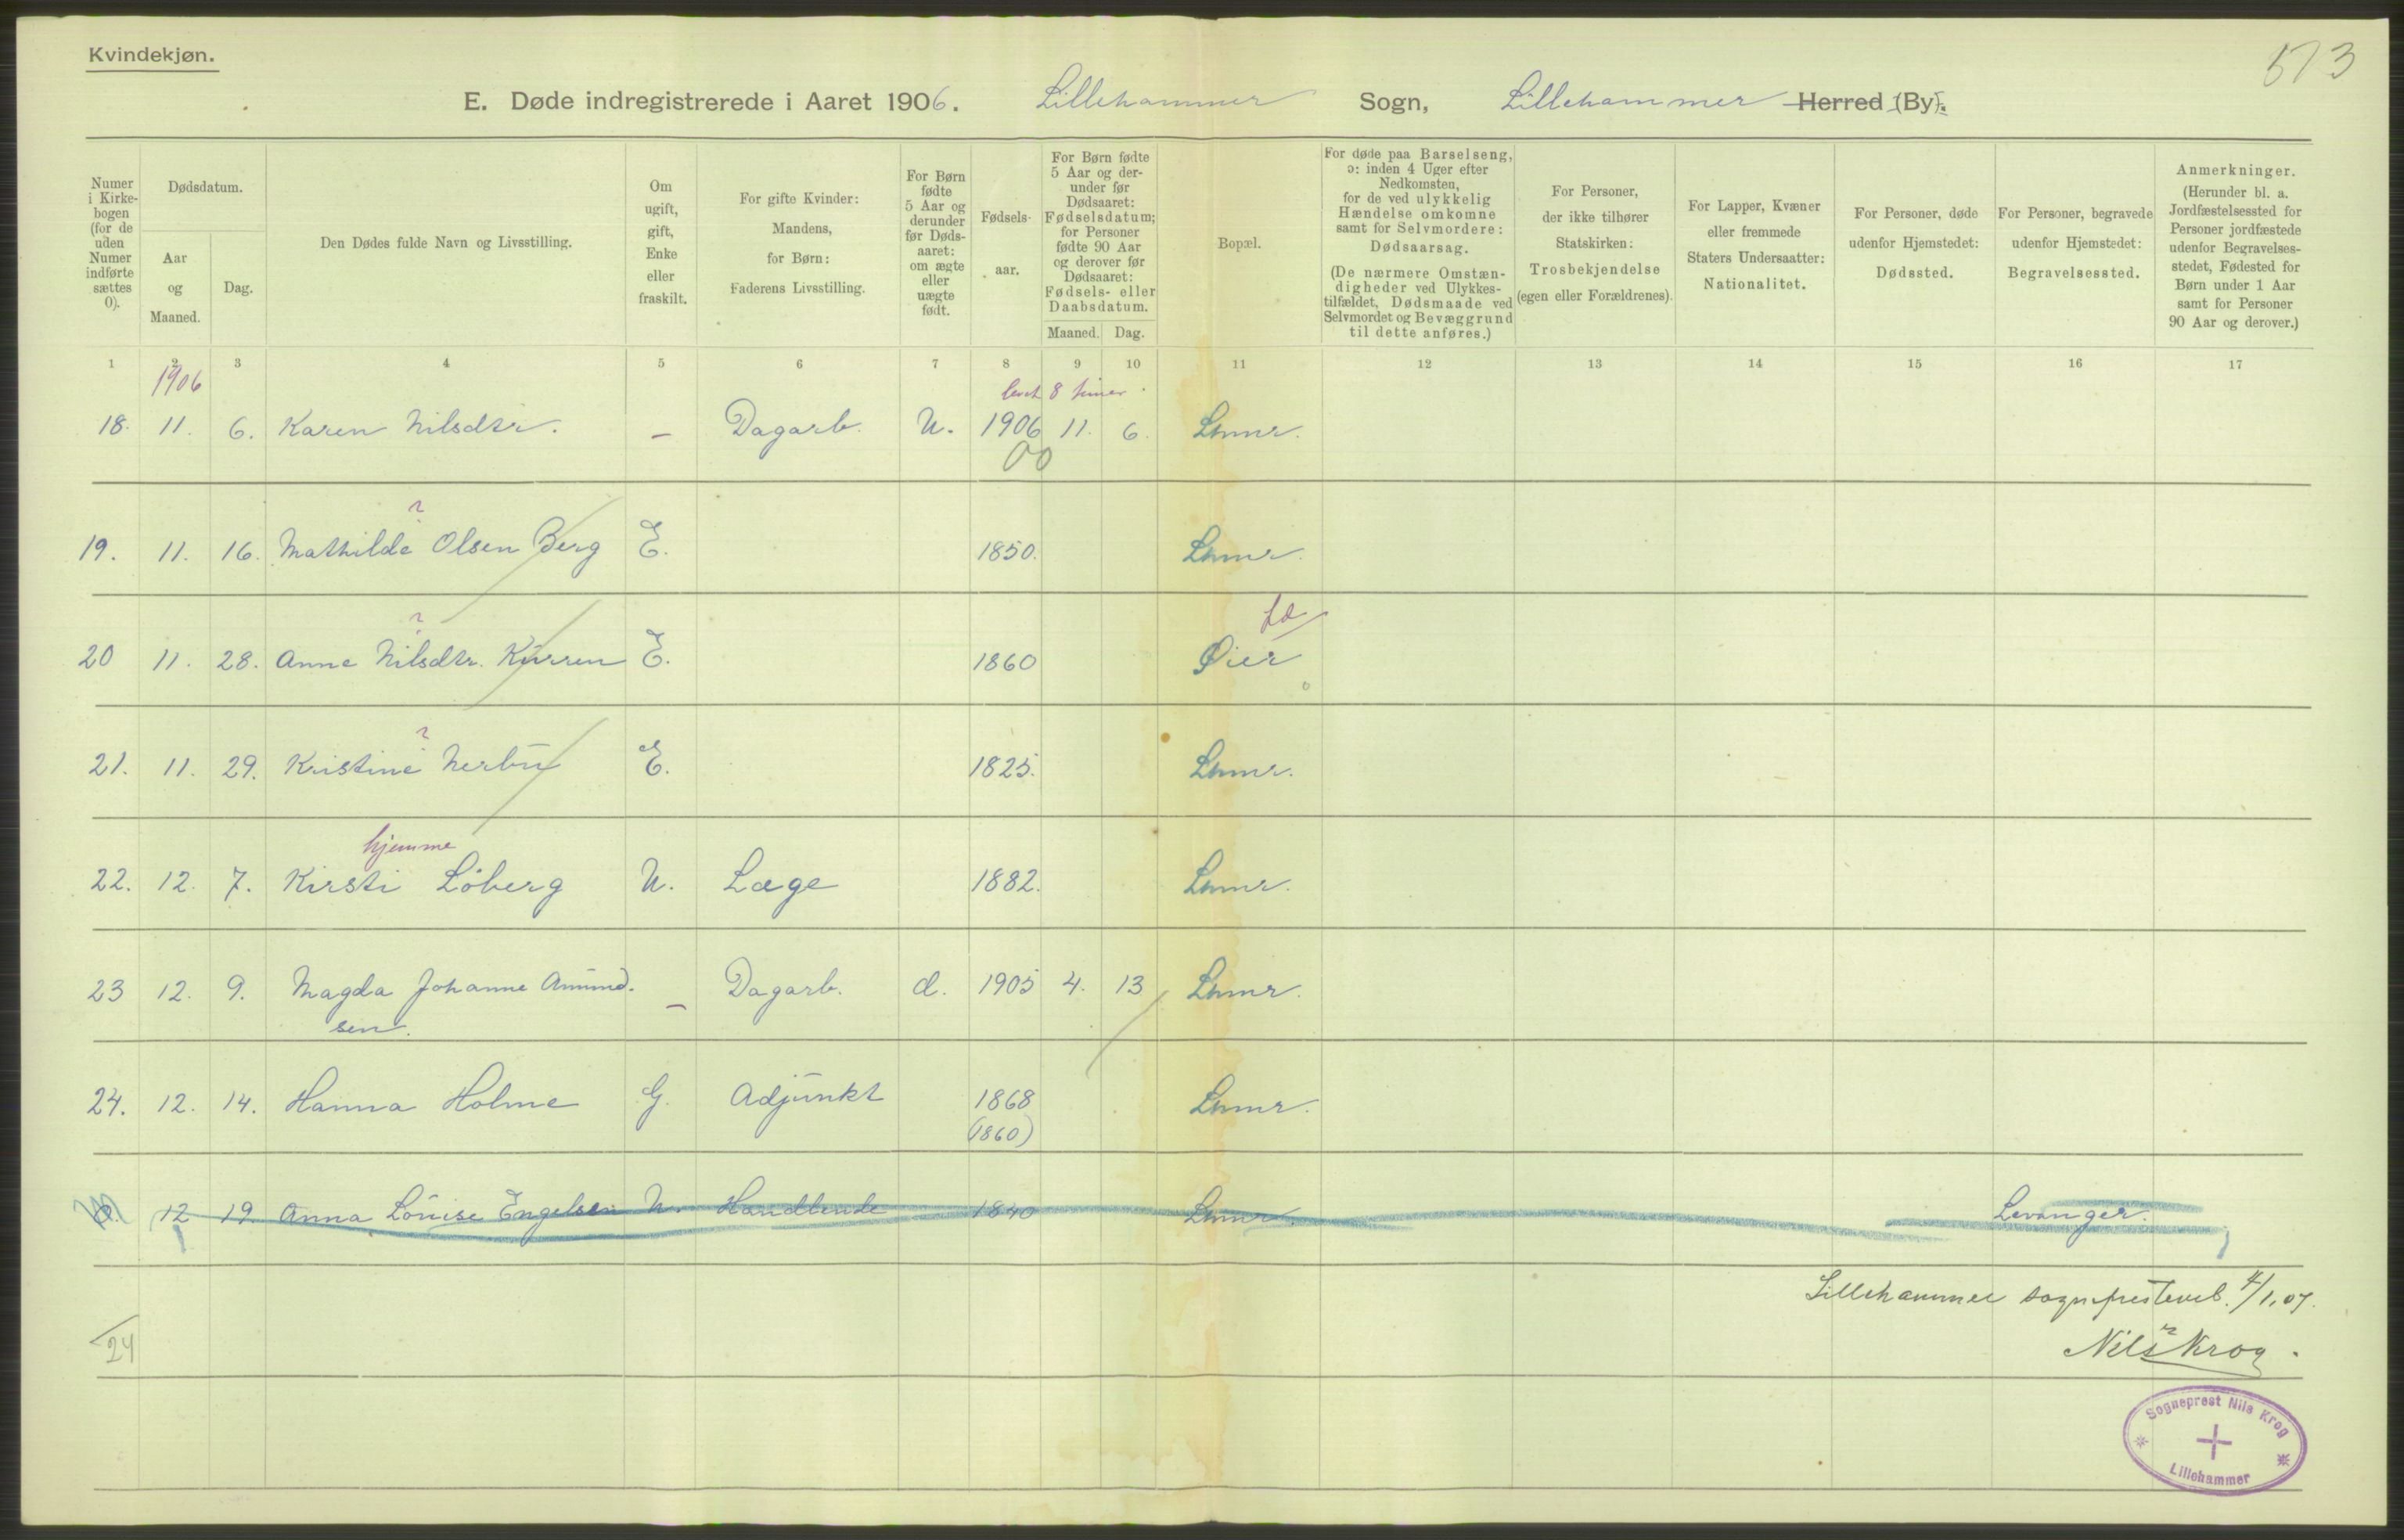 Kvindekjøn.
573
E. Døde indregistrerede i Aaret 1906. Lillehammer Sogn, Lillehammer Herred (By).
Numer i Kirke-bogen (for de uden Numer indførte sættes 0).
Dødsdatum.
Aar og Maaned.
Dag.
Den Dødes fulde Navn og Livsstilling.
Om ugift, gift, Enke eller fraskilt.
For gifte Kvinder: Mandens, for Børn: Faderens Livsstilling.
For Børn fødte 5 Aar og derunder før Døds-aaret: om ægte eller uægte født.
Fødsels-aar.
For Børn fødte 5 Aar og der-under før Dødsaaret: Fødselsdatum; for Personer fødte 90 Aar og derover før Dødsaaret: Fødsels- eller Daabsdatum.
Maaned. Dag.
Bopæl.
For døde paa Barselseng, ɔ: inden 4 Uger efter Nedkomsten, for de ved ulykkelig Hændelse omkomne samt for Selvmordere: Dødsaarsag. (De nærmere Omstæn-digheder ved Ulykkes-tilfældet, Dødsmaade ved Selvmordet og Bevæggrund til dette anføres.)
For Personer, der ikke tilhører Statskirken: Trosbekjendelse (egen eller Forældrenes).
For Lapper, Kvæner eller fremmede Staters Undersaatter: Nationalitet.
For Personer, døde udenfor Hjemstedet: Dødssted.
For Personer, begravede udenfor Hjemstedet: Begravelsessted.
Anmerkninger. (Herunder bl. a. Jordfæstelsessted for Personer jordfæstede udenfor Begravelses-stedet, Fødested for Børn under 1 Aar samt for Personer 90 Aar og derover.)
1 2 3 4 5 6 7 8 9 10 11 12 13 14 15 16 17
1906 levet 8 timer
18. 11. 6. Karen Nilsdtr. – Dagarb. U. 1906 11. 6. Lhmr.
00
?
19. 11. 16. Mathilde Olsen Berg E. 1850. Lhmr.
?
20 11. 28. Anne Nilsdtr. Kurren E. 1860 Øier
?
21. 11. 29. Kristine Nerbu E. 1825. Lhmr.
hjemme
22. 12. 7. Kirsti Löberg U. Læge 1882. Lhmr.
23 12. 9. Magda Johanne Amund- – Dagarb. d. 1905 4. 13 Lhmr.
sen.
24. 12. 14. Hanna Holme G. Adjunkt 1868 Lhmr.
(1860)
12 19 Anna Louise Engelsen U. Handlende 1840 Lhmr. Levanger.
Lillehammer sogneprestemb. 4/1.07.
24
Nils Krog.
Sogneprest Nils Krog
Lillehammer